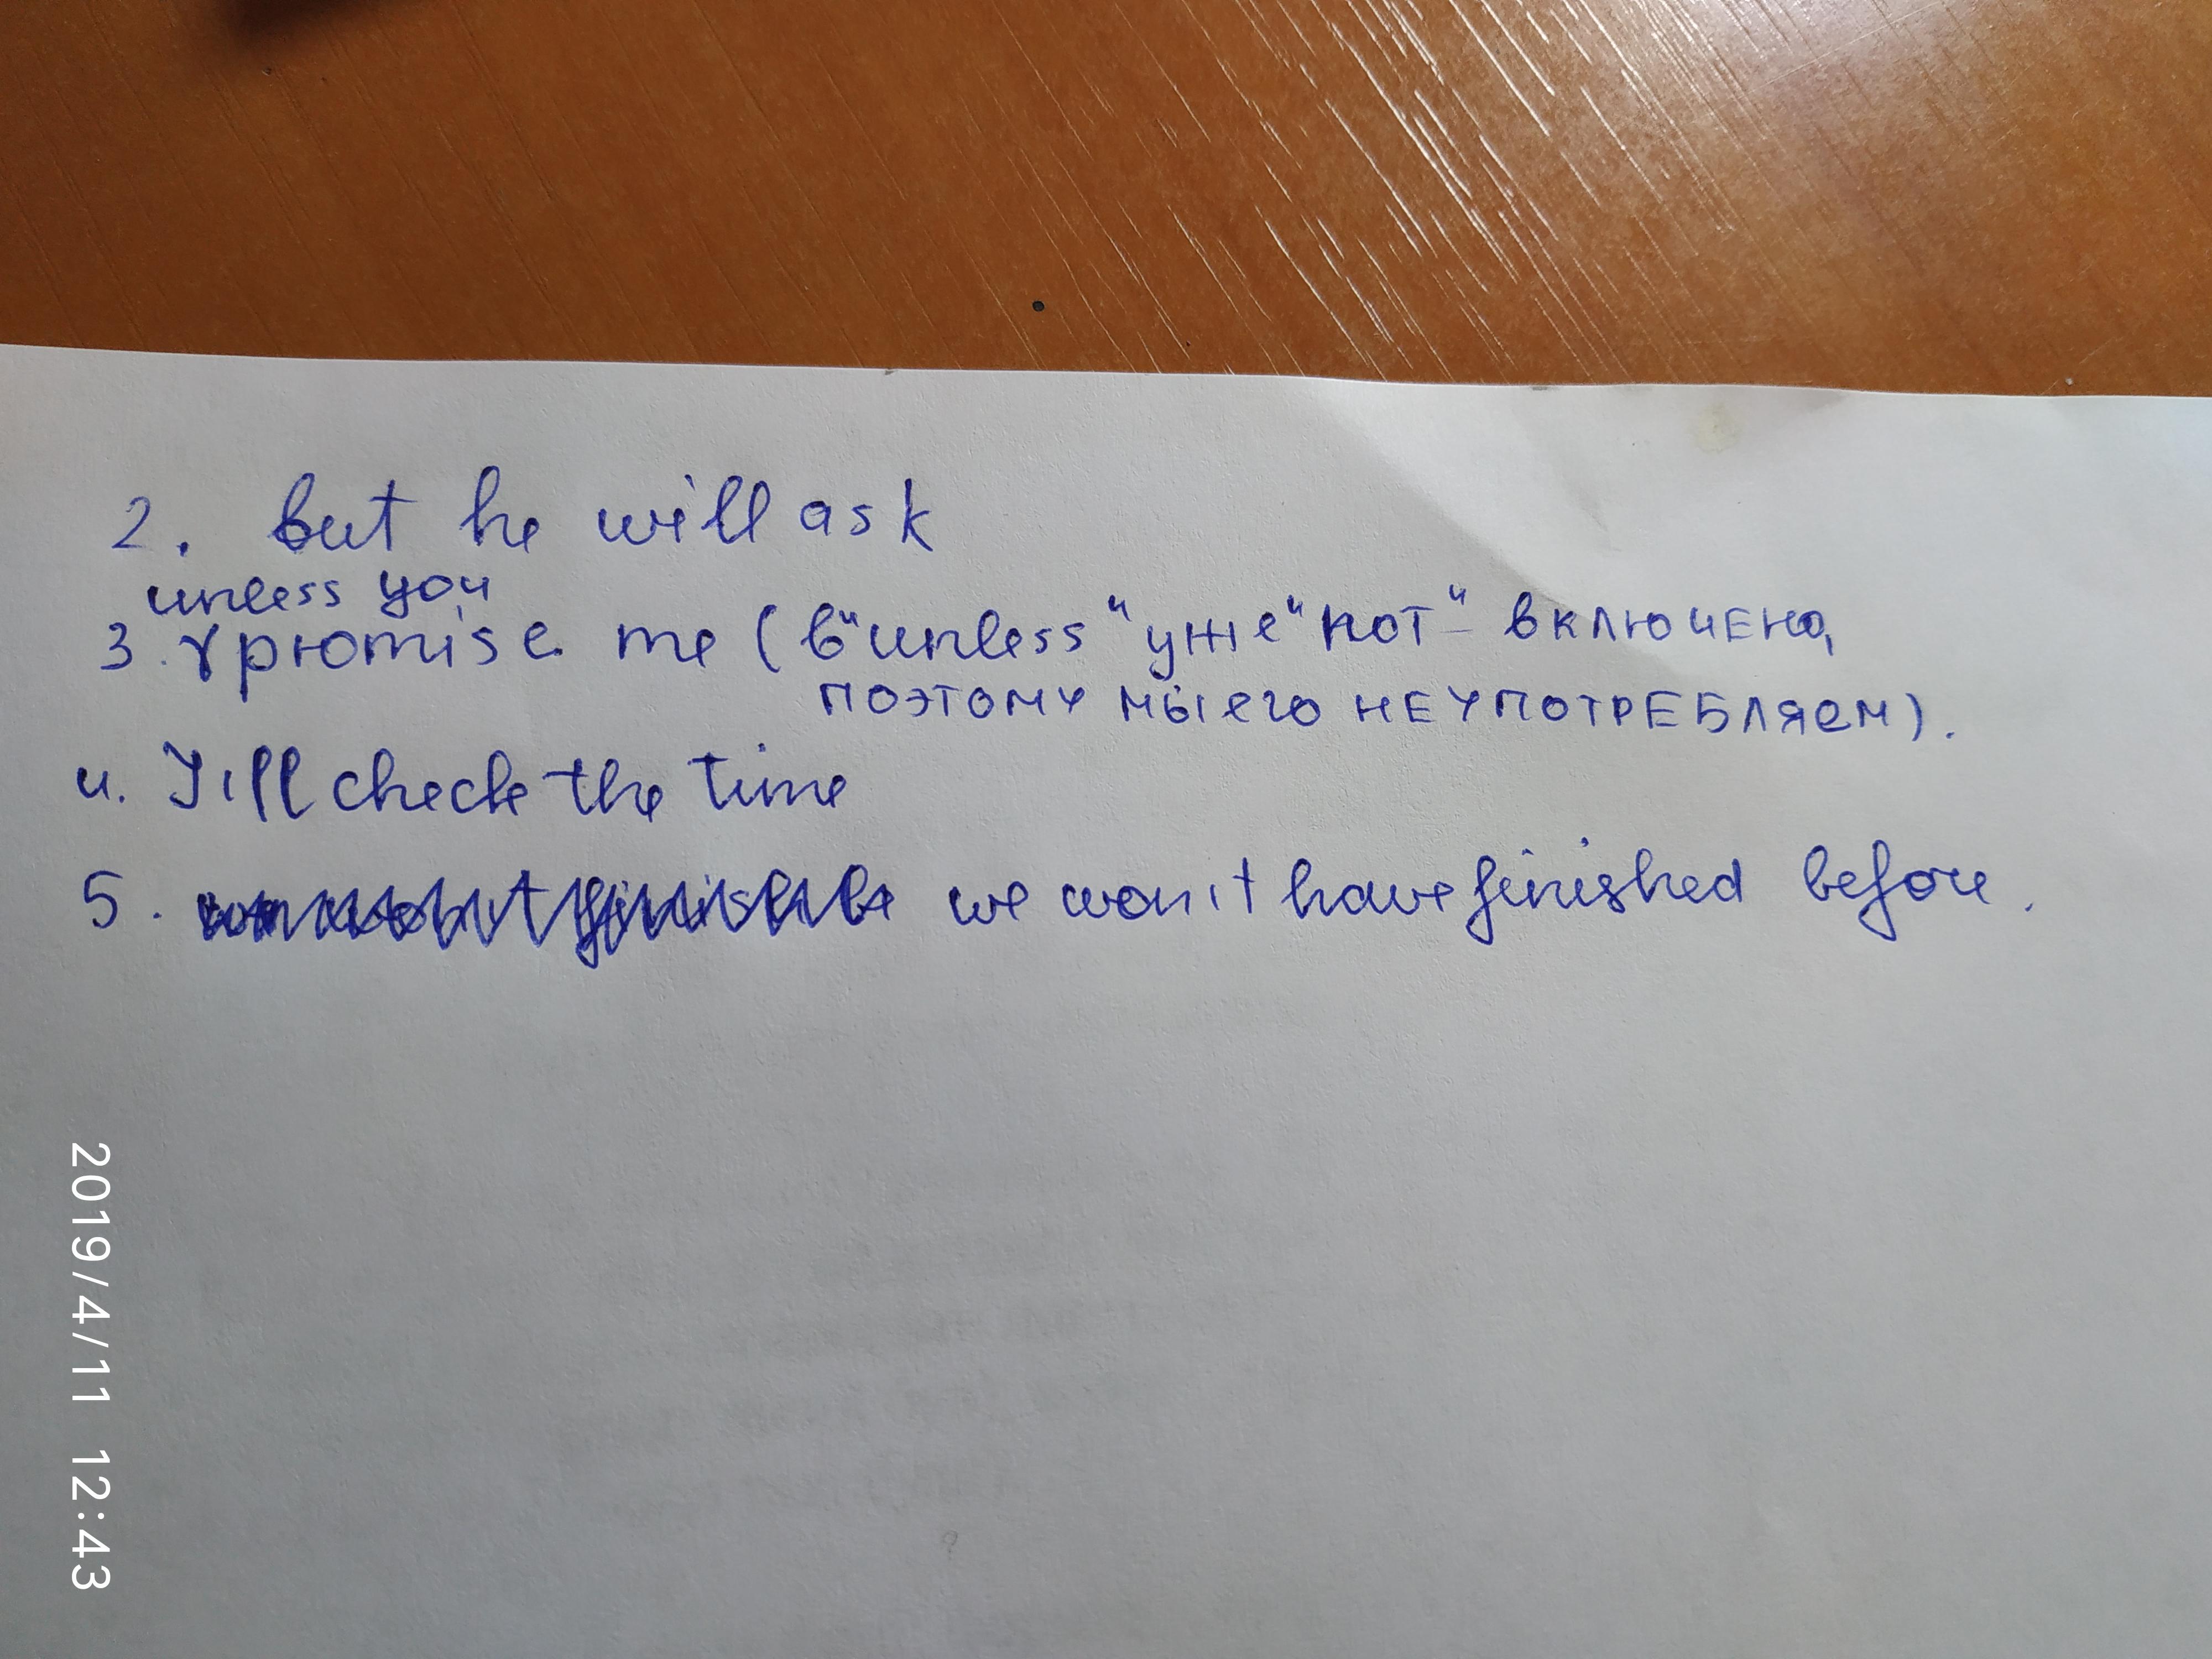 2. but he will ask
unless you
3. promise me (в "unless" уже "not" - включено,
поэтому мы его не употребляем).
4. I'll check the time
5. we won't have finished before.
2019/4/11 12:43